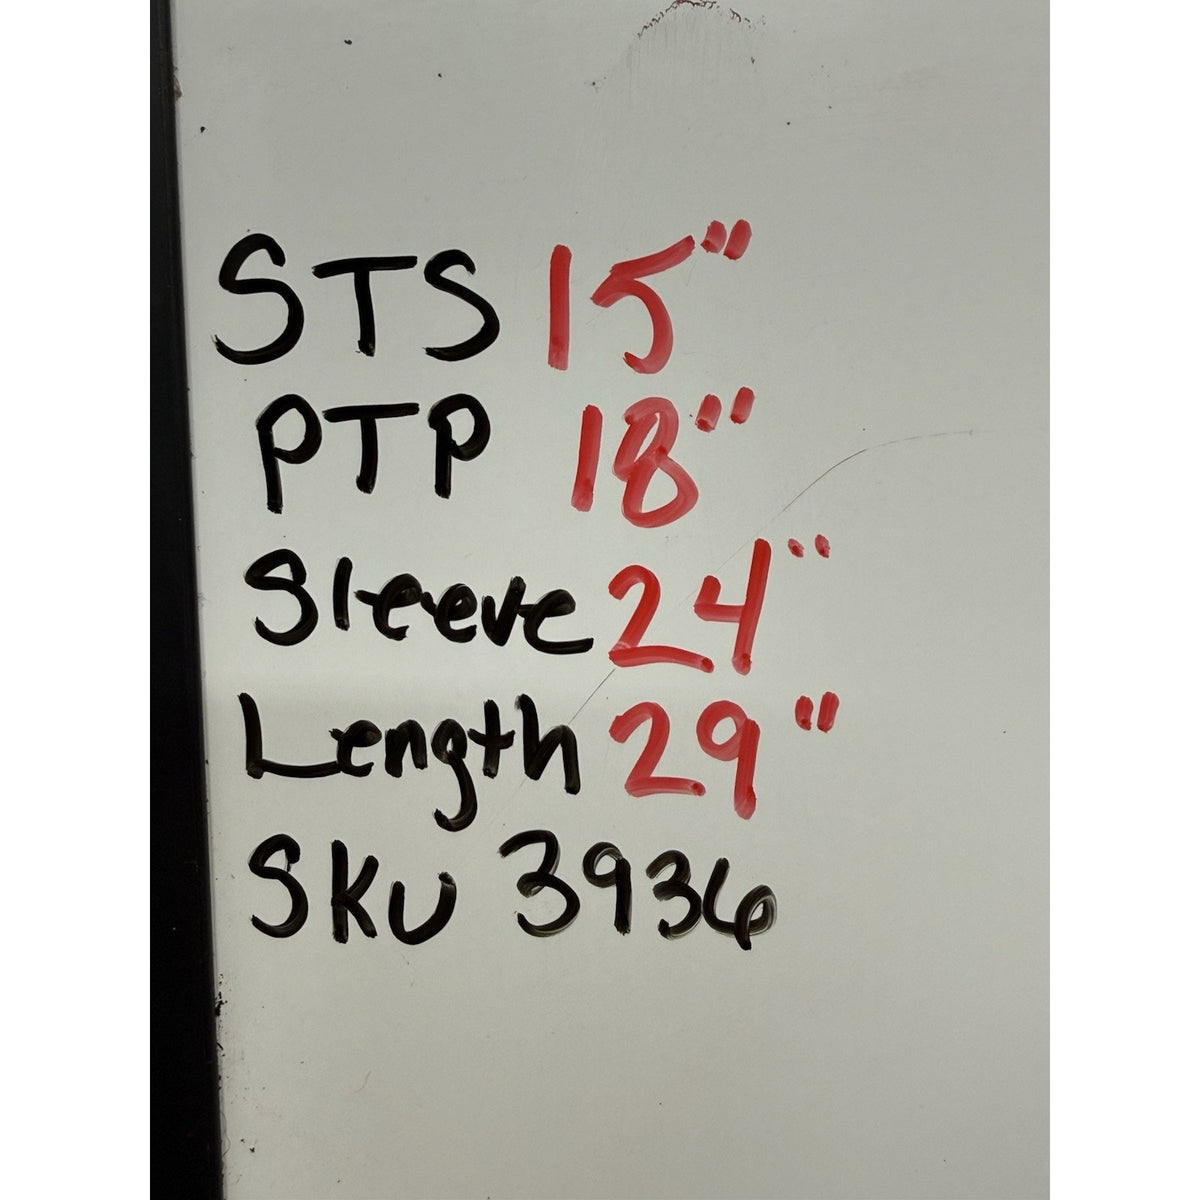 STS 15"
PTP 18"
Sleeve 24"
Length 29"
SKU 3936